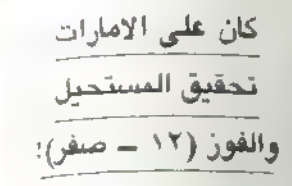 كان على الامارات
تحقيق المستحيل
والفوز (١٢ ــ صفر):